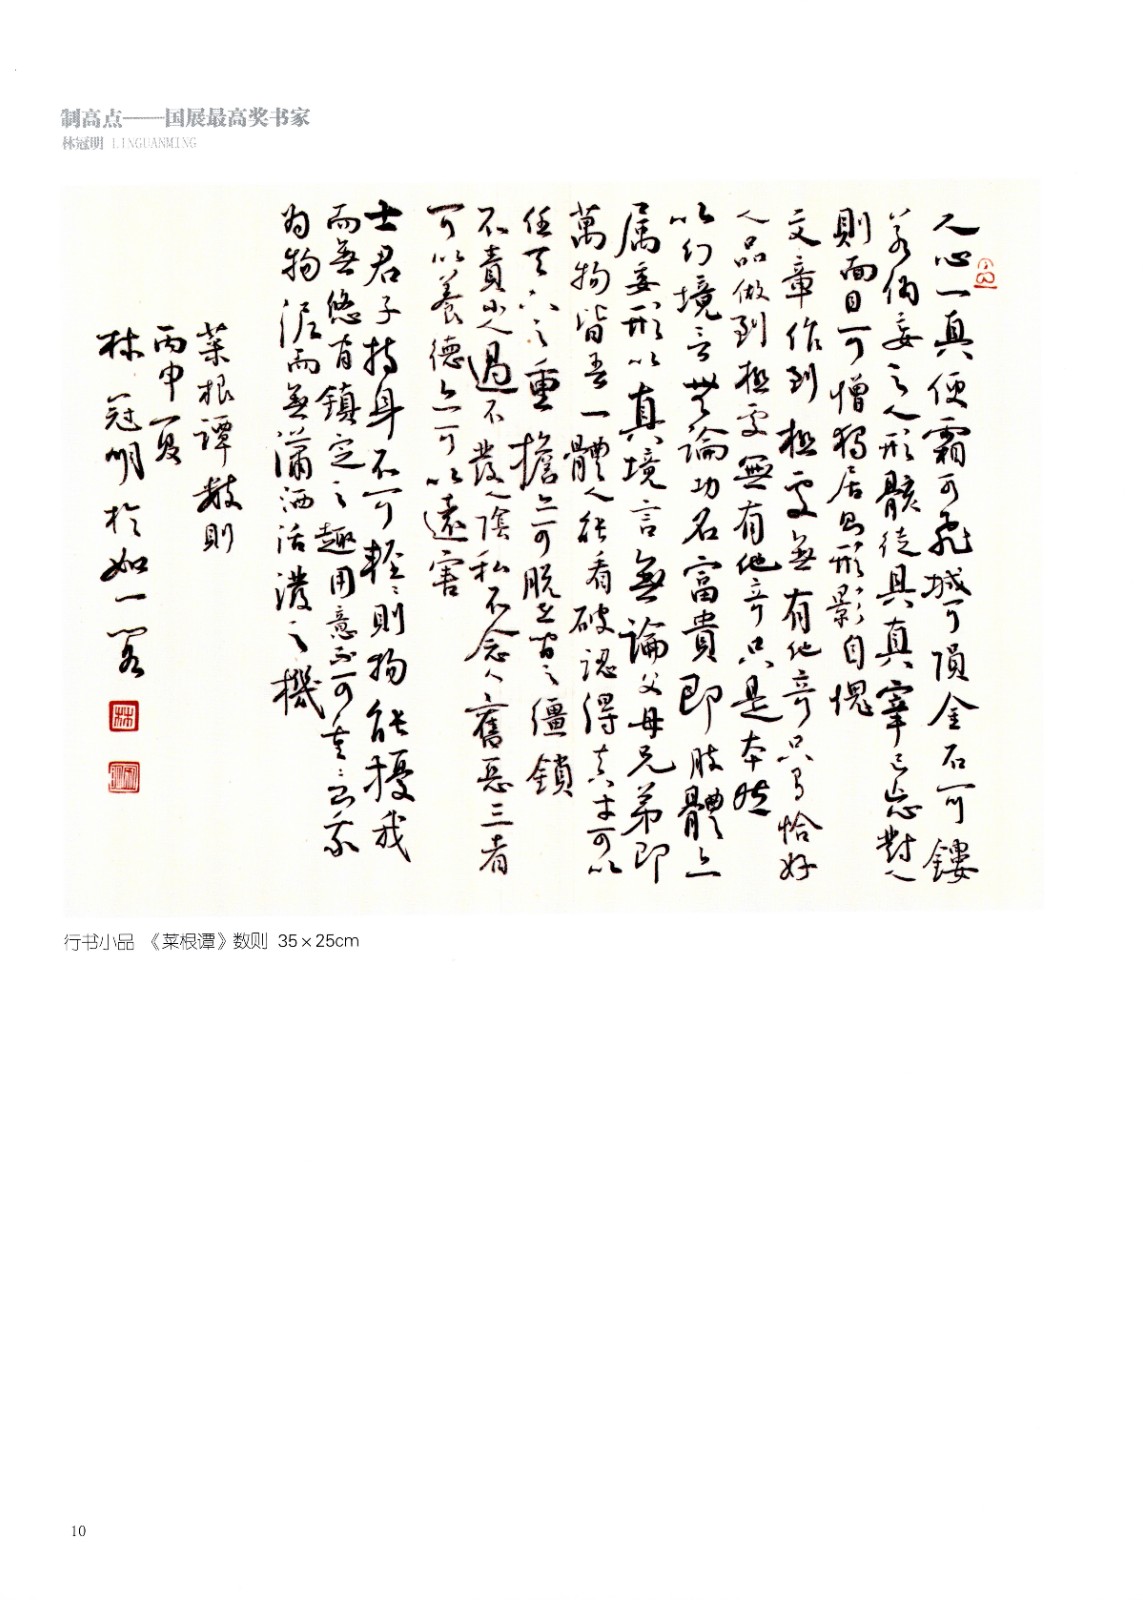 制高点——国展最高奖书家
林冠明 LINGUANMING
人心一真便霜可飛城可隕金石可鏤
若偽妄之人形骸徒具真宰已忘對人
則面目可憎獨居則形影自愧
文章作到極處無有他奇只為恰好
人品做到極處無有他奇只是本然
以幻境言無論功名富貴即肢體亦
属委形以真境言無論父母兄弟即
萬物皆吾一體人能看破認得真才可以
任天下之重擔亦可脱世間之繮鎖
不責小人過不發人陰私不念人舊惡三者
可以養德亦可以遠害
士君子持身不可輕輕則物能扰我
而無悠闲鎮定之趣用意不可重重則我
为物泥而無瀟洒活潑之機
菜根譚数則
丙申夏
林冠明於如一閣
林
行书小品 《菜根谭》数则 35×25cm
10